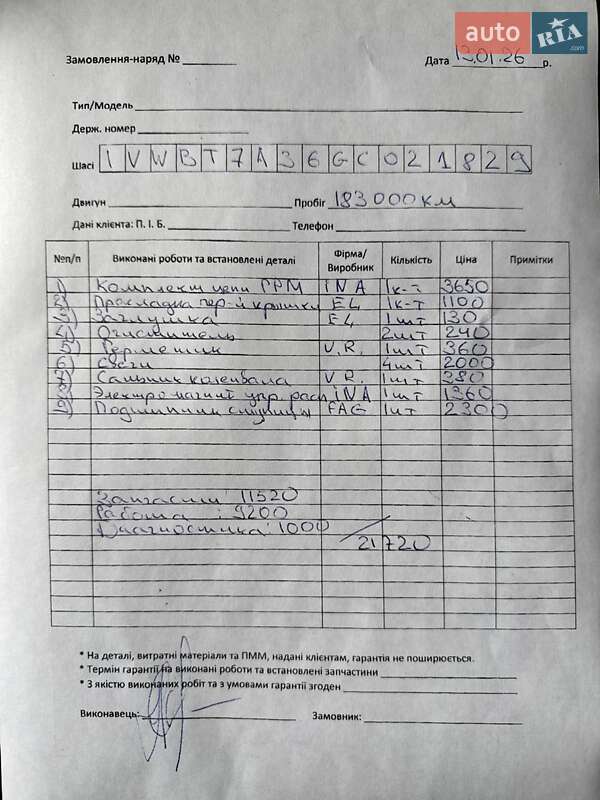 auto RIA .com
Замовлення-наряд № Дата 13.01.26 р.
Тип/Модель
Держ. номер
Шасі 1VWBT7A36GC021829
Двигун Пробіг 183 000 км
Дані клієнта: П. І. Б. Телефон
№п/п Виконані роботи та встановлені деталі Фірма/Виробник Кількість Ціна Примітки
1) Комплект цепи ГРМ INA 1к-т 3650
2) Прокладка пер-й крышки EL 1к-т 1100
3) Заглушка EL 1шт 130
4) Очиститель 2шт 240
5) Герметик V.R. 1шт 360
6) Свечи 4шт 2000
7) Сальник коленвала V.R. 1шт 380
8) Электромагнит упр. расп INA 1шт 1360
9) Подшипник ступицы FAG 1шт 2300
Запчасти: 11520
Работа: 9200
Диагностика: 1000
21720
* На деталі, витратні матеріали та ПММ, надані клієнтам, гарантія не поширюється.
* Термін гарантії на виконані роботи та встановлені запчастини
* З якістю виконаних робіт та з умовами гарантії згоден
Виконавець: Замовник: